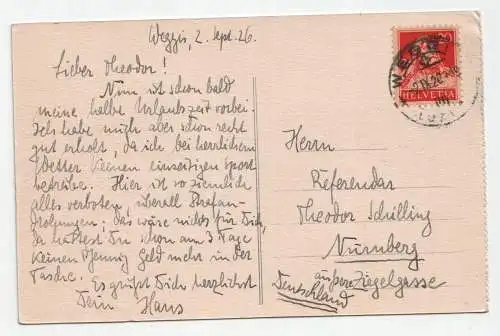 Weggis, 2. Sept. 26.
Lieber Theodor!
Nun ist schon bald
meine halbe Urlaubszeit vorbei.
Ich habe mich aber schon recht
gut erholt, da ich bei herrlichem
Wetter keinen einseitigen Sport
betreibe. Hier ist so ziemlich
alles verboten, überall Strafan-
drohungen; das wäre nichts für Dich,
da hättest Du schon am 3. Tage
keinen Pfennig Geld mehr in der
Tasche. Es grüßt Dich herzlichst
Dein Hans
HELVETIA
Herrn
Referendar
Theodor Schilling
Nürnberg
äussere Ziegelgasse
Deutschland